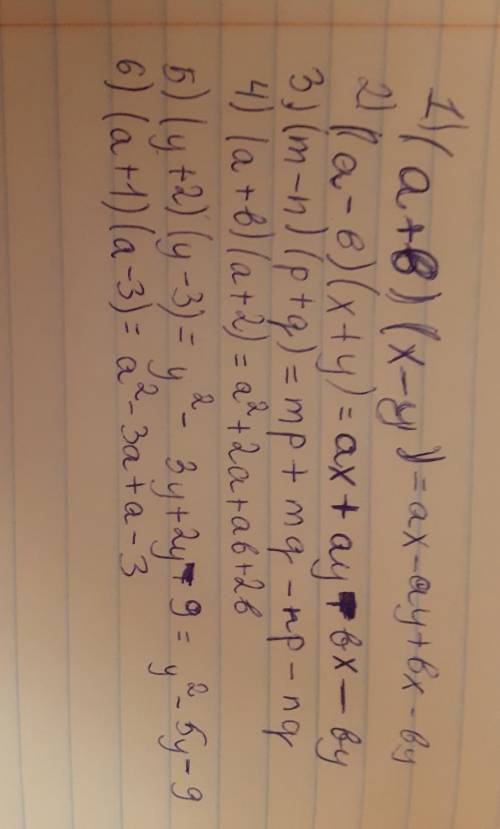 1) (a+b)(x-y)=ax-ay+bx-by
2) (a-b)(x+y)=ax+ay-bx-by
3) (m-n)(p+q)=mp+mq-np-nq
4) (a+b)(a+2)=a²+2a+ab+2b
5) (y+2)(y-3)=y²-3y+2y-9=y²-5y-9
6) (a+1)(a-3)=a²-3a+a-3